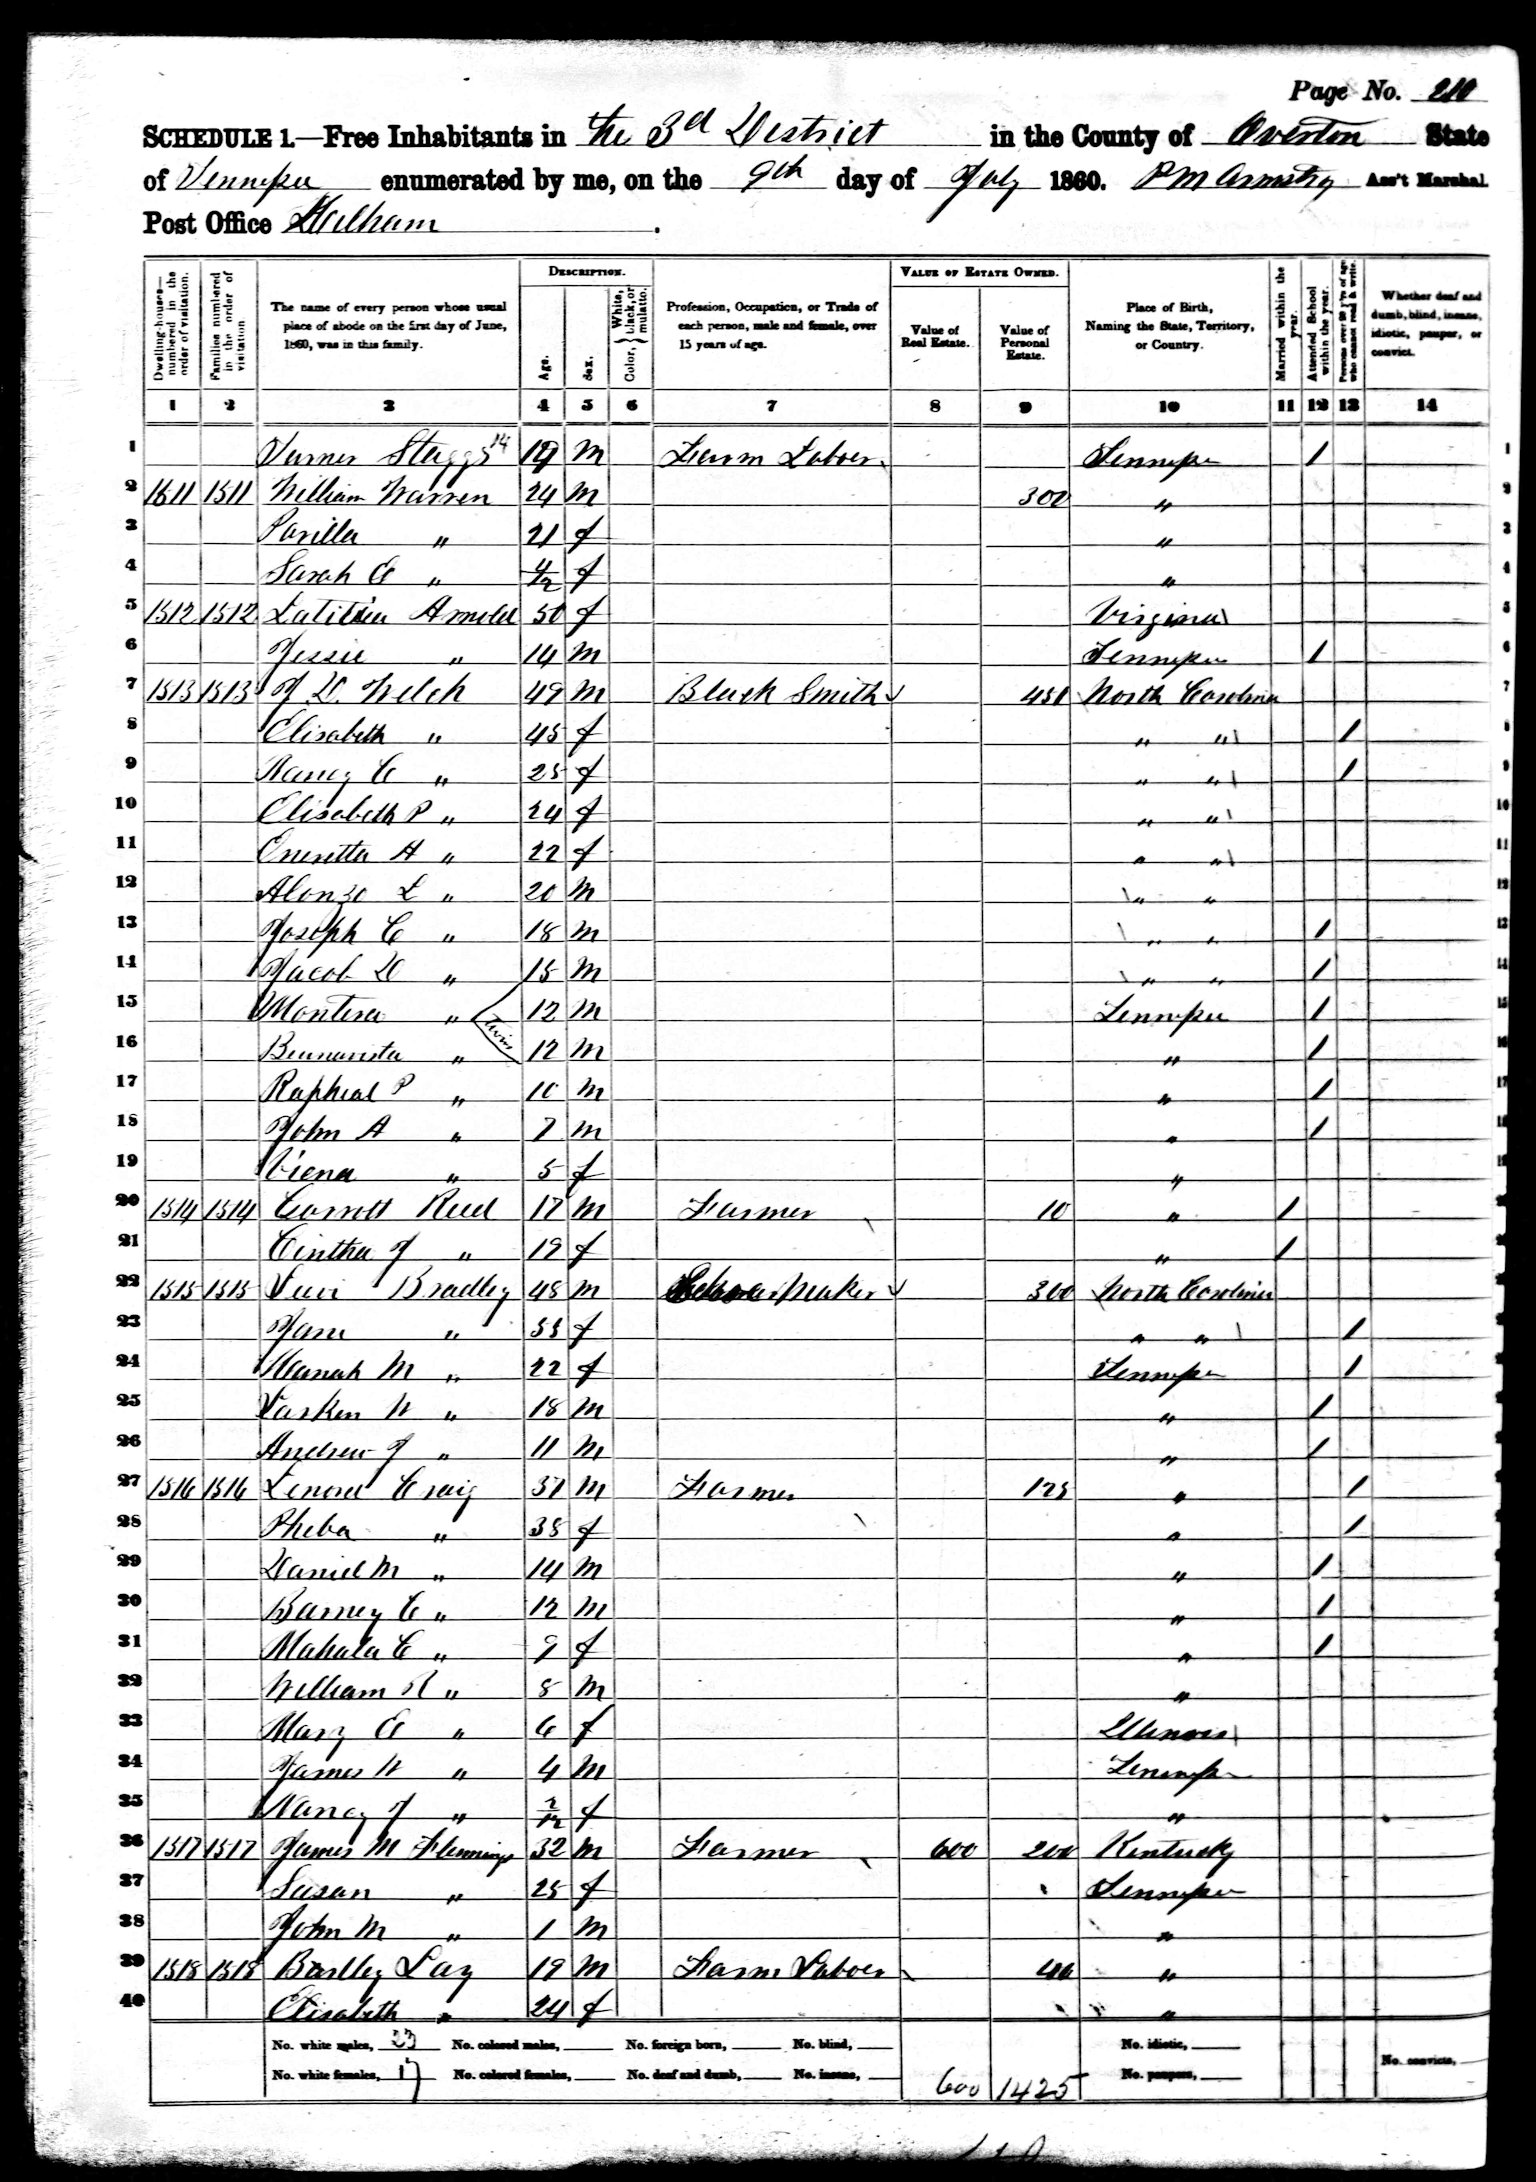 Page No. 210
SCHEDULE 1.—Free Inhabitants in the 3d District in the County of Overton State
of Tennessee enumerated by me, on the 9th day of July 1860. P M Armstrong Ass't Marshal.
Post Office
Dwelling-houses—numbered in the order of visitation.
Families numbered in the order of visitation.
The name of every person whose usual place of abode on the first day of June, 1860, was in this family.
DESCRIPTION.
Age.
Sex.
Color, White, black, or mulatto.
Profession, Occupation, or Trade of each person, male and female, over 15 years of age.
VALUE OF ESTATE OWNED.
Value of Real Estate.
Value of Personal Estate.
Place of Birth, Naming the State, Territory, or Country.
Married within the year.
Attended School within the year.
Persons over 20 y'rs of age who cannot read & write.
Whether deaf and dumb, blind, insane, idiotic, pauper, or convict.
1 2 3 4 5 6 7 8 9 10 11 12 13 14
1 Turner Staggs 14 19 m Farm Labor Tennessee / 1
2 1511 1511 William Warren 24 m 300 " 2
3 " 21 f " 3
4 Sarah E " 4/12 f " 4
5 1512 1512 Arnold 50 f Virginia 5
6 Jessie " 14 m Tennessee / 6
7 1513 1513 J D. Welch 49 m Black Smith 450 North Carolina 7
8 Elisabeth " 45 f " " / 8
9 Nancy C " 25 f " " / 9
10 Elisabeth P " 24 f " " 10
11 A " 22 f " " 11
12 Alonzo L " 20 m " " 12
13 Joseph C " 18 m " " / 13
14 Jacob D " 15 m " " / 14
15 " twins 12 m Tennessee / 15
16 " 12 m " / 16
17 Rapheal P " 10 m " / 17
18 John A " 7 m " / 18
19 Viena " 5 f " 19
20 1514 1514 Reed 17 m Farmer 10 " /
21 Cintha J " 19 f " /
22 1515 1515 Bradley 48 m Maker 300 North Carolina
23 Jane " 55 f " " /
24 Hanah M " 22 f Tennessee /
25 " 18 m " /
26 Andrew J " 11 m " /
27 1516 1516 Craig 37 m Farmer 125 " /
28 Pheba " 38 f " /
29 Daniel M " 14 m " /
30 Barney C " 12 m " /
31 Mahala C " 9 f " /
32 William R " 8 m "
33 Mary E " 6 f Illinois
34 James W " 4 m Tennessee
35 Nancy J " f "
36 1517 1517 James M Flemings 32 m Farmer 600 200 Kentucky
37 Susan " 25 f Tennessee
38 John M " 1 m "
39 1518 1518 19 m Farm Labor 40 "
40 Elisabeth " 24 f "
No. white males, 23 No. colored males, No. foreign born, No. blind, No. idiotic,
No. white females, 17 No. colored females, No. deaf and dumb, No. insane, 600 1425 No. paupers, No. convicts,